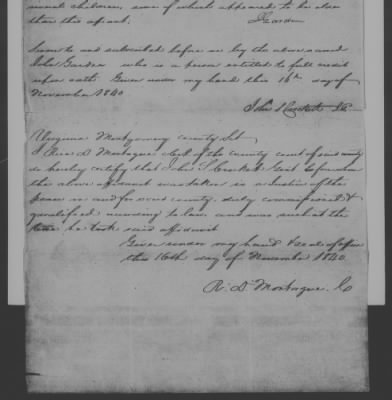 children, some of which appeared to be older
than this affiant.
J Garden
Sworn to and subscribed before me by the above named
John Garden who is a person entitled to full credit
upon oath. Given under my hand this 16th day of
November 1840
John S Crockett
Virginia Montgomery County Sct
I Rice D Montague Clerk of the County Court of said county
do hereby certify that John S Crockett Gent before whom
the above affidavit was taken is a Justice of the
peace in and for said county, duly commissioned &
qualified according to law and was such at the
time he took said affidavit
Given under my hand & seal of office
this 16th day of November 1840
R. D. Montague, C